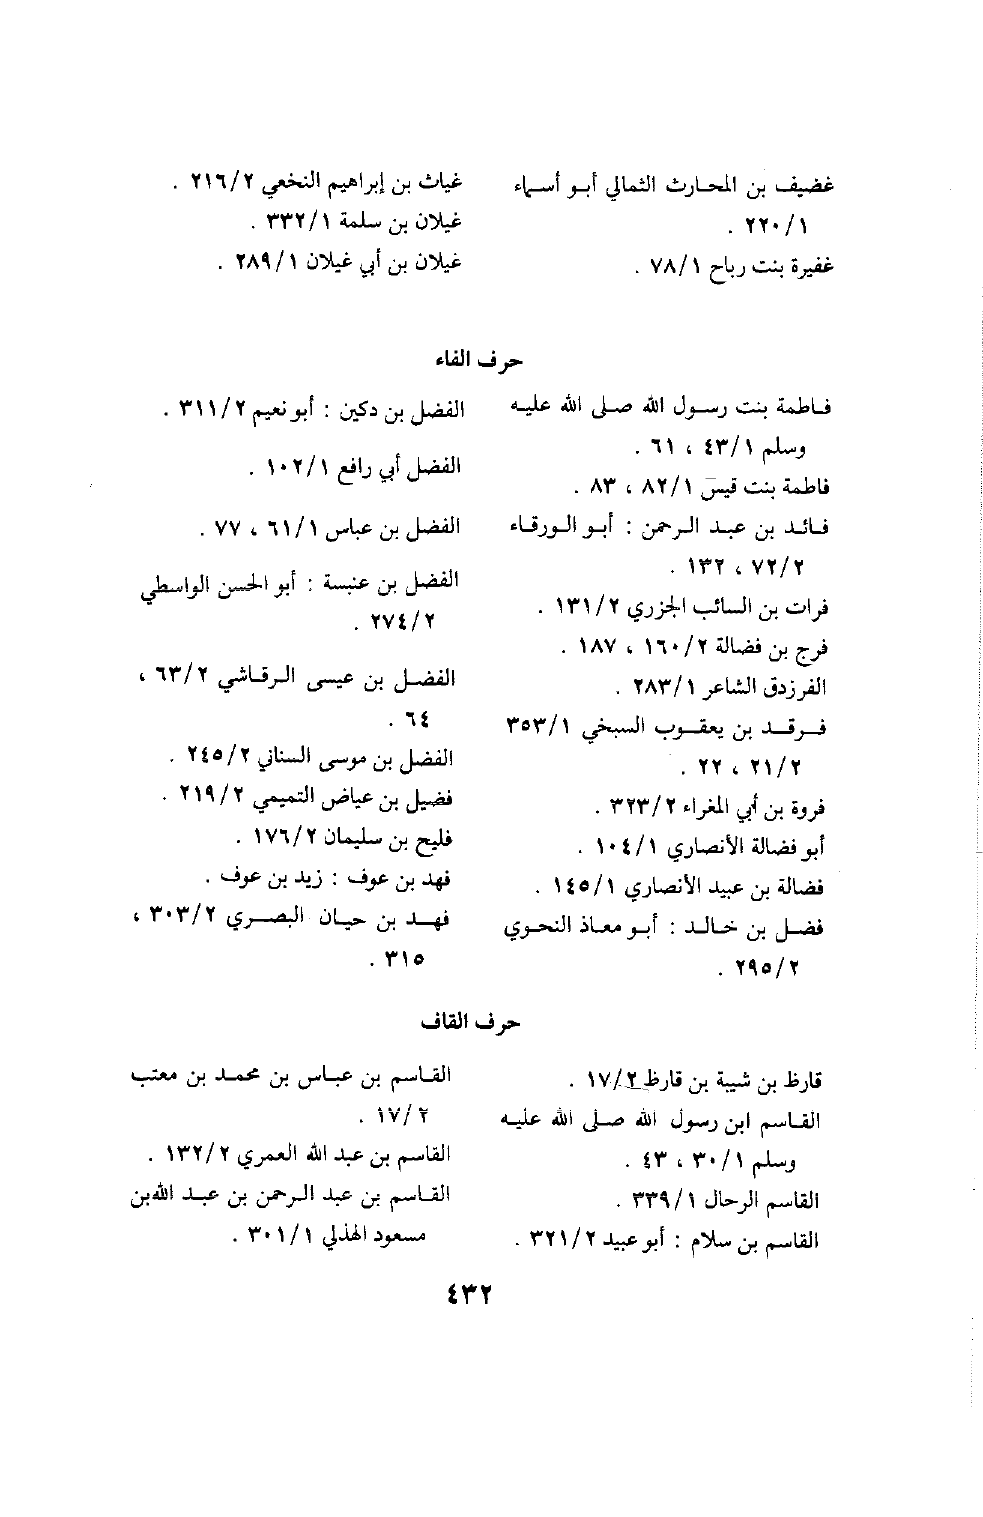 غضيف بن المحارث الثمالي أبو أسماء
٢٢٠/١ .
غفيرة بنت رباح ٧٨/١ .
غياث بن إبراهيم النخعي ٢١٦/٢ .
غيلان بن سلمة ٣٣٢/١ .
غيلان بن أبي غيلان ٢٨٩/١ .
حرف الفاء
فاطمة بنت رسول الله صلى الله عليه
وسلم ٤٣/١ ، ٦١ .
فاطمة بنت قيس ٨٢/١ ، ٨٣ .
فائد بن عبد الرحمن : أبو الورقاء
٧٢/٢ ، ١٣٢ .
فرات بن السائب الجزري ١٣١/٢ .
فرج بن فضالة ١٦٠/٢ ، ١٨٧ .
الفرزدق الشاعر ٢٨٣/١ .
فرقد بن يعقوب السبخي ٣٥٣/١
٢١/٢ ، ٢٢ .
فروة بن أبي المغراء ٣٢٣/٢ .
أبو فضالة الأنصاري ١٠٤/١ .
فضالة بن عبيد الأنصاري ١٤٥/١ .
فضل بن خالد : أبو معاذ النحوي
٢٩٥/٢ .
الفضل بن دكين : أبو نعيم ٣١١/٢ .
الفضل أبي رافع ١٠٢/١ .
الفضل بن عباس ٦١/١ ، ٧٧ .
الفضل بن عنبسة : أبو الحسن الواسطي
٢٧٤/٢ .
الفضل بن عيسى الرقاشي ٦٣/٢ ،
٦٤ .
الفضل بن موسى السناني ٢٤٥/٢ .
فضيل بن عياض التميمي ٢١٩/٢ .
فليح بن سليمان ١٧٦/٢ .
فهد بن عوف : زيد بن عوف .
فهد بن حيان البصري ٣٠٣/٢ ،
٣١٥ .
حرف القاف
قارظ بن شيبة بن قارظ ١٧/٢ .
القاسم ابن رسول الله صلى الله عليه
وسلم ٣٠/١ ، ٤٣ .
القاسم الرحال ٣٣٩/١ .
القاسم بن سلام : أبو عبيد ٣٢١/٢ .
القاسم بن عباس بن محمد بن معتب
١٧/٢ .
القاسم بن عبد الله العمري ١٣٢/٢ .
القاسم بن عبد الرحمن بن عبد الله بن
مسعود الهذلي ٣٠١/١ .
٤٣٢